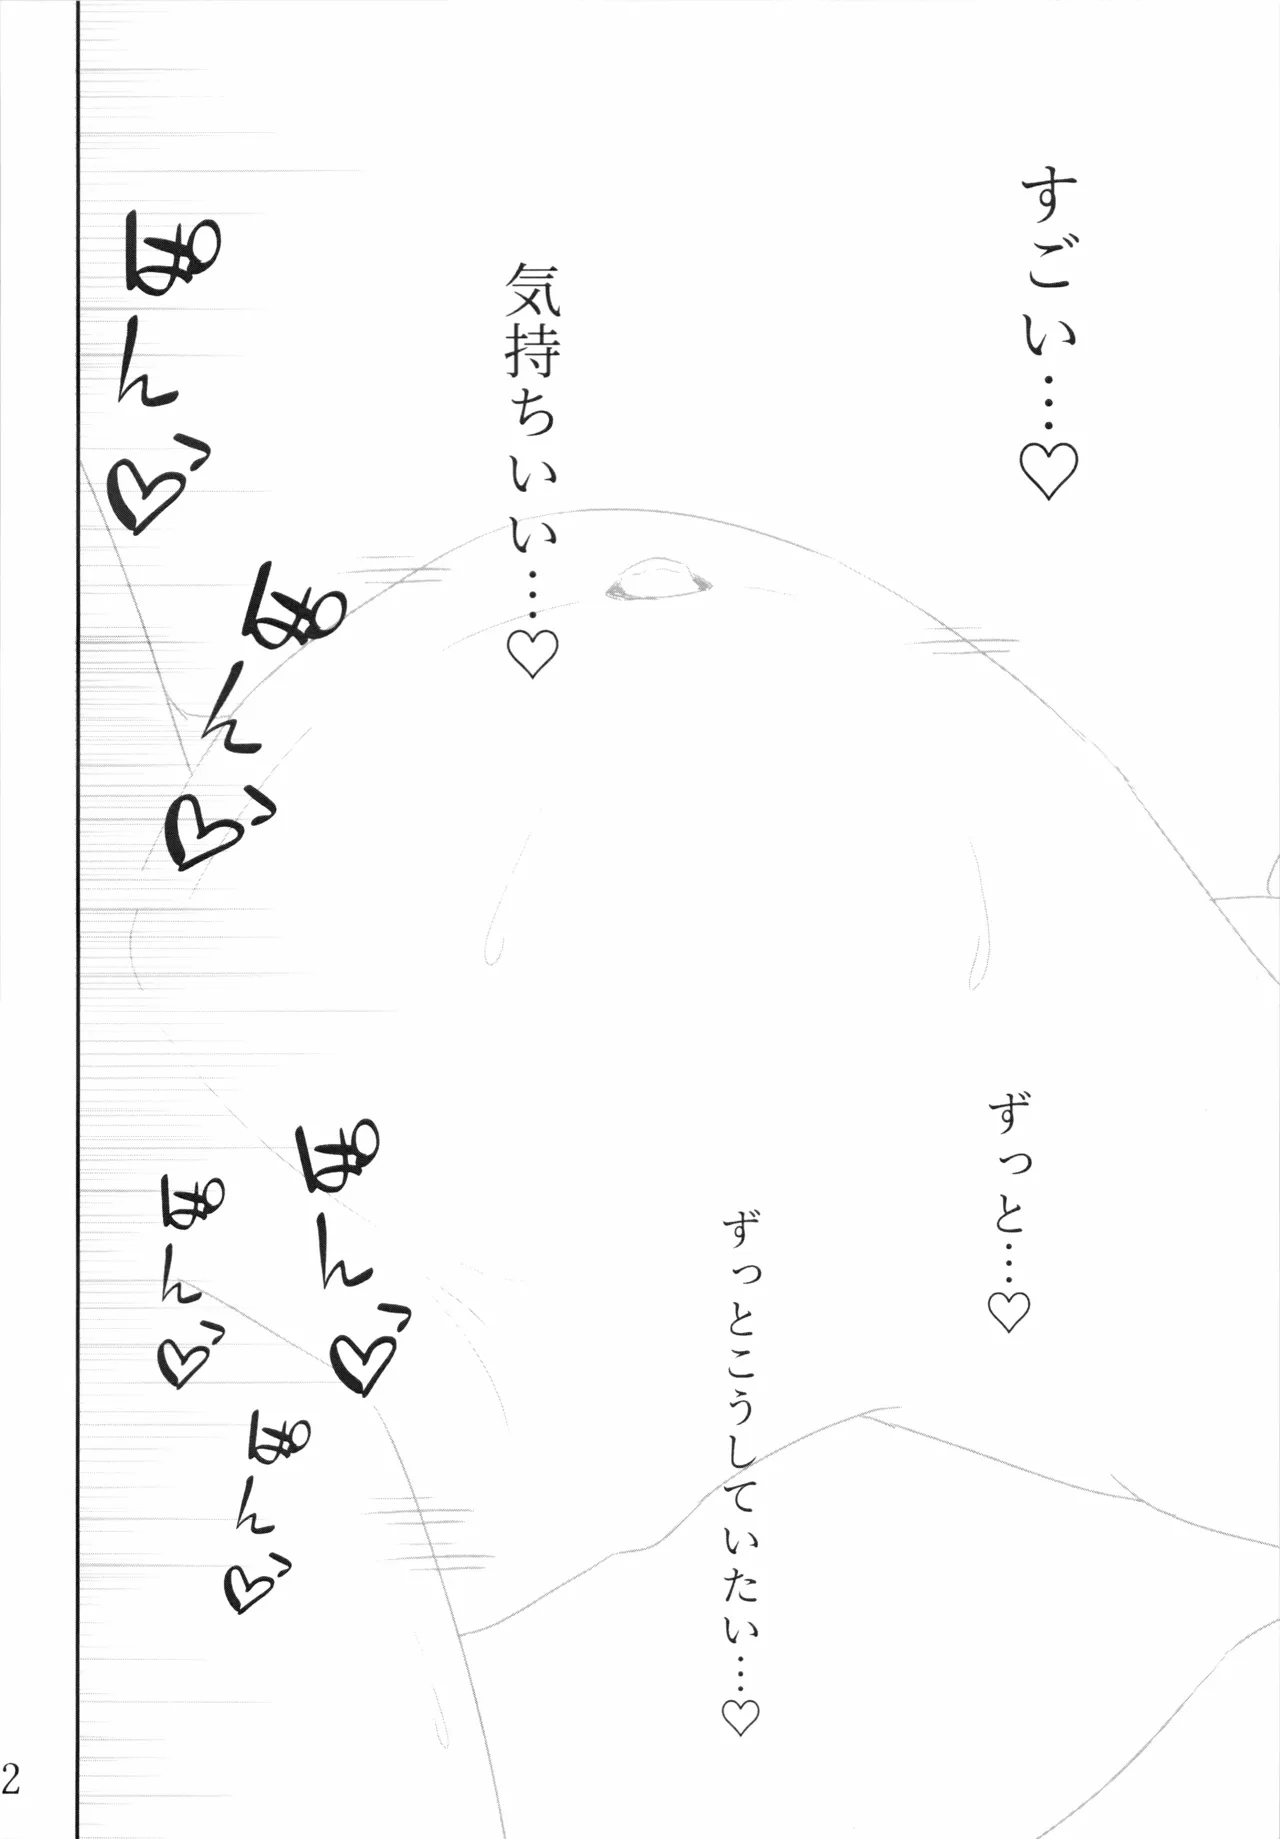 すごい…♡
気持ちいい…♡
ずっと…♡
ずっとこうしていたい…♡
ぱんっ♡
ぱんっ♡
ぱんっ♡
ぱんっ♡
ぱんっ♡
2